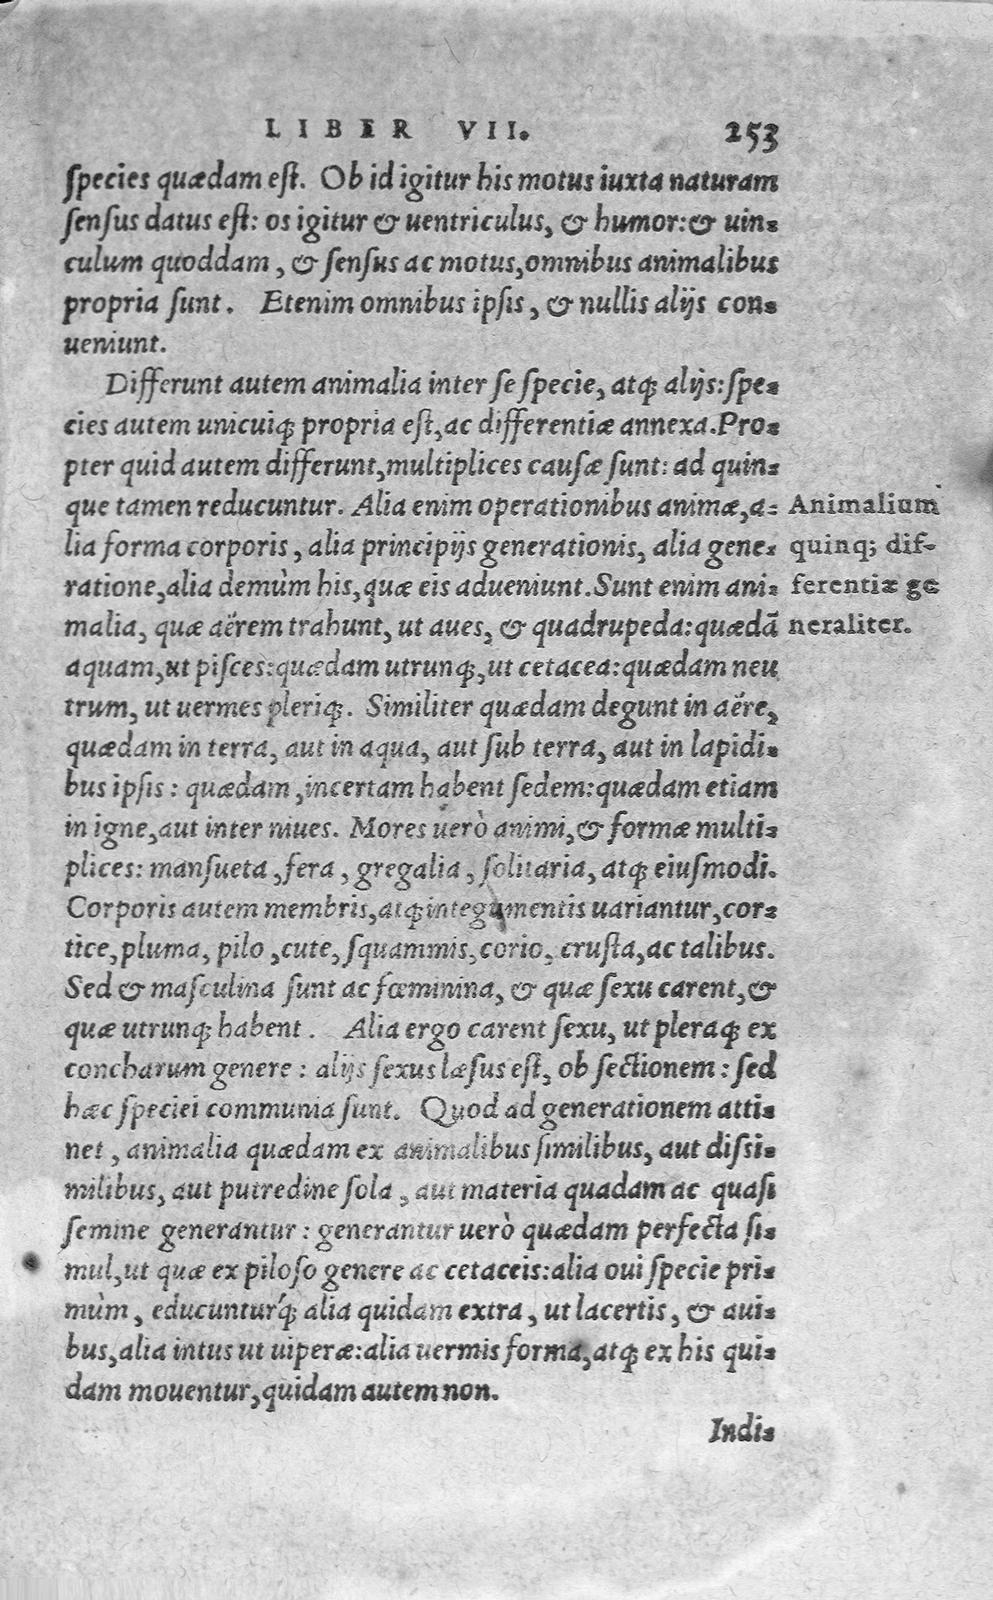 LIBER VII. 253
ſpecies quædam eſt. Ob id igitur his motus iuxta naturam
ſenſus datus eſt: os igitur & uentriculus, & humor: & uin-
culum quoddam, & ſenſus ac motus, omnibus animalibus
propria ſunt. Etenim omnibus ipſis, & nullis alijs con-
ueniunt.
Differunt autem animalia inter ſe ſpecie, atq; alijs: ſpe-
cies autem unicuiq; propria eſt, ac differentiæ annexa. Pro-
pter quid autem differunt, multiplices cauſæ ſunt: ad quin-
que tamen reducuntur. Alia enim operationibus animæ, a-
lia forma corporis, alia principijs generationis, alia gene-
ratione, alia demùm his, quæ eis adueniunt. Sunt enim ani-
malia, quæ aërem trahunt, ut aues, & quadrupeda: quædã
aquam, ut piſces: quædam utrunq;, ut cetacea: quædam neu
trum, ut uermes pleriq;. Similiter quædam degunt in aëre,
quædam in terra, aut in aqua, aut ſub terra, aut in lapidi-
bus ipſis: quædam, incertam habent ſedem: quædam etiam
in igne, aut inter niues. Mores uerò animi, & formæ multi-
plices: manſueta, fera, gregalia, ſolitaria, atq; eiuſmodi.
Corporis autem membris, atq; integumentis uariantur, cor-
tice, pluma, pilo, cute, ſquammis, corio, cruſta, ac talibus.
Sed & maſculina ſunt ac fœminina, & quæ ſexu carent, &
quæ utrunq; habent. Alia ergo carent ſexu, ut pleraq; ex
concharum genere: alijs ſexus læſus eſt, ob ſectionem: ſed
hæc ſpeciei communia ſunt. Quod ad generationem atti-
net, animalia quædam ex animalibus ſimilibus, aut diſsi-
milibus, aut putredine ſola, aut materia quadam ac quaſi
ſemine generantur: generantur uerò quædam perfecta ſi-
mul, ut quæ ex piloſo genere ac cetaceis: alia oui ſpecie pri-
mùm, educunturq́; alia quidam extra, ut lacertis, & aui-
bus, alia intus ut uiperæ: alia uermis forma, atq; ex his qui-
dam mouentur, quidam autem non.
Indi-
Animalium
quinq; dif-
ferentiæ ge
neraliter.